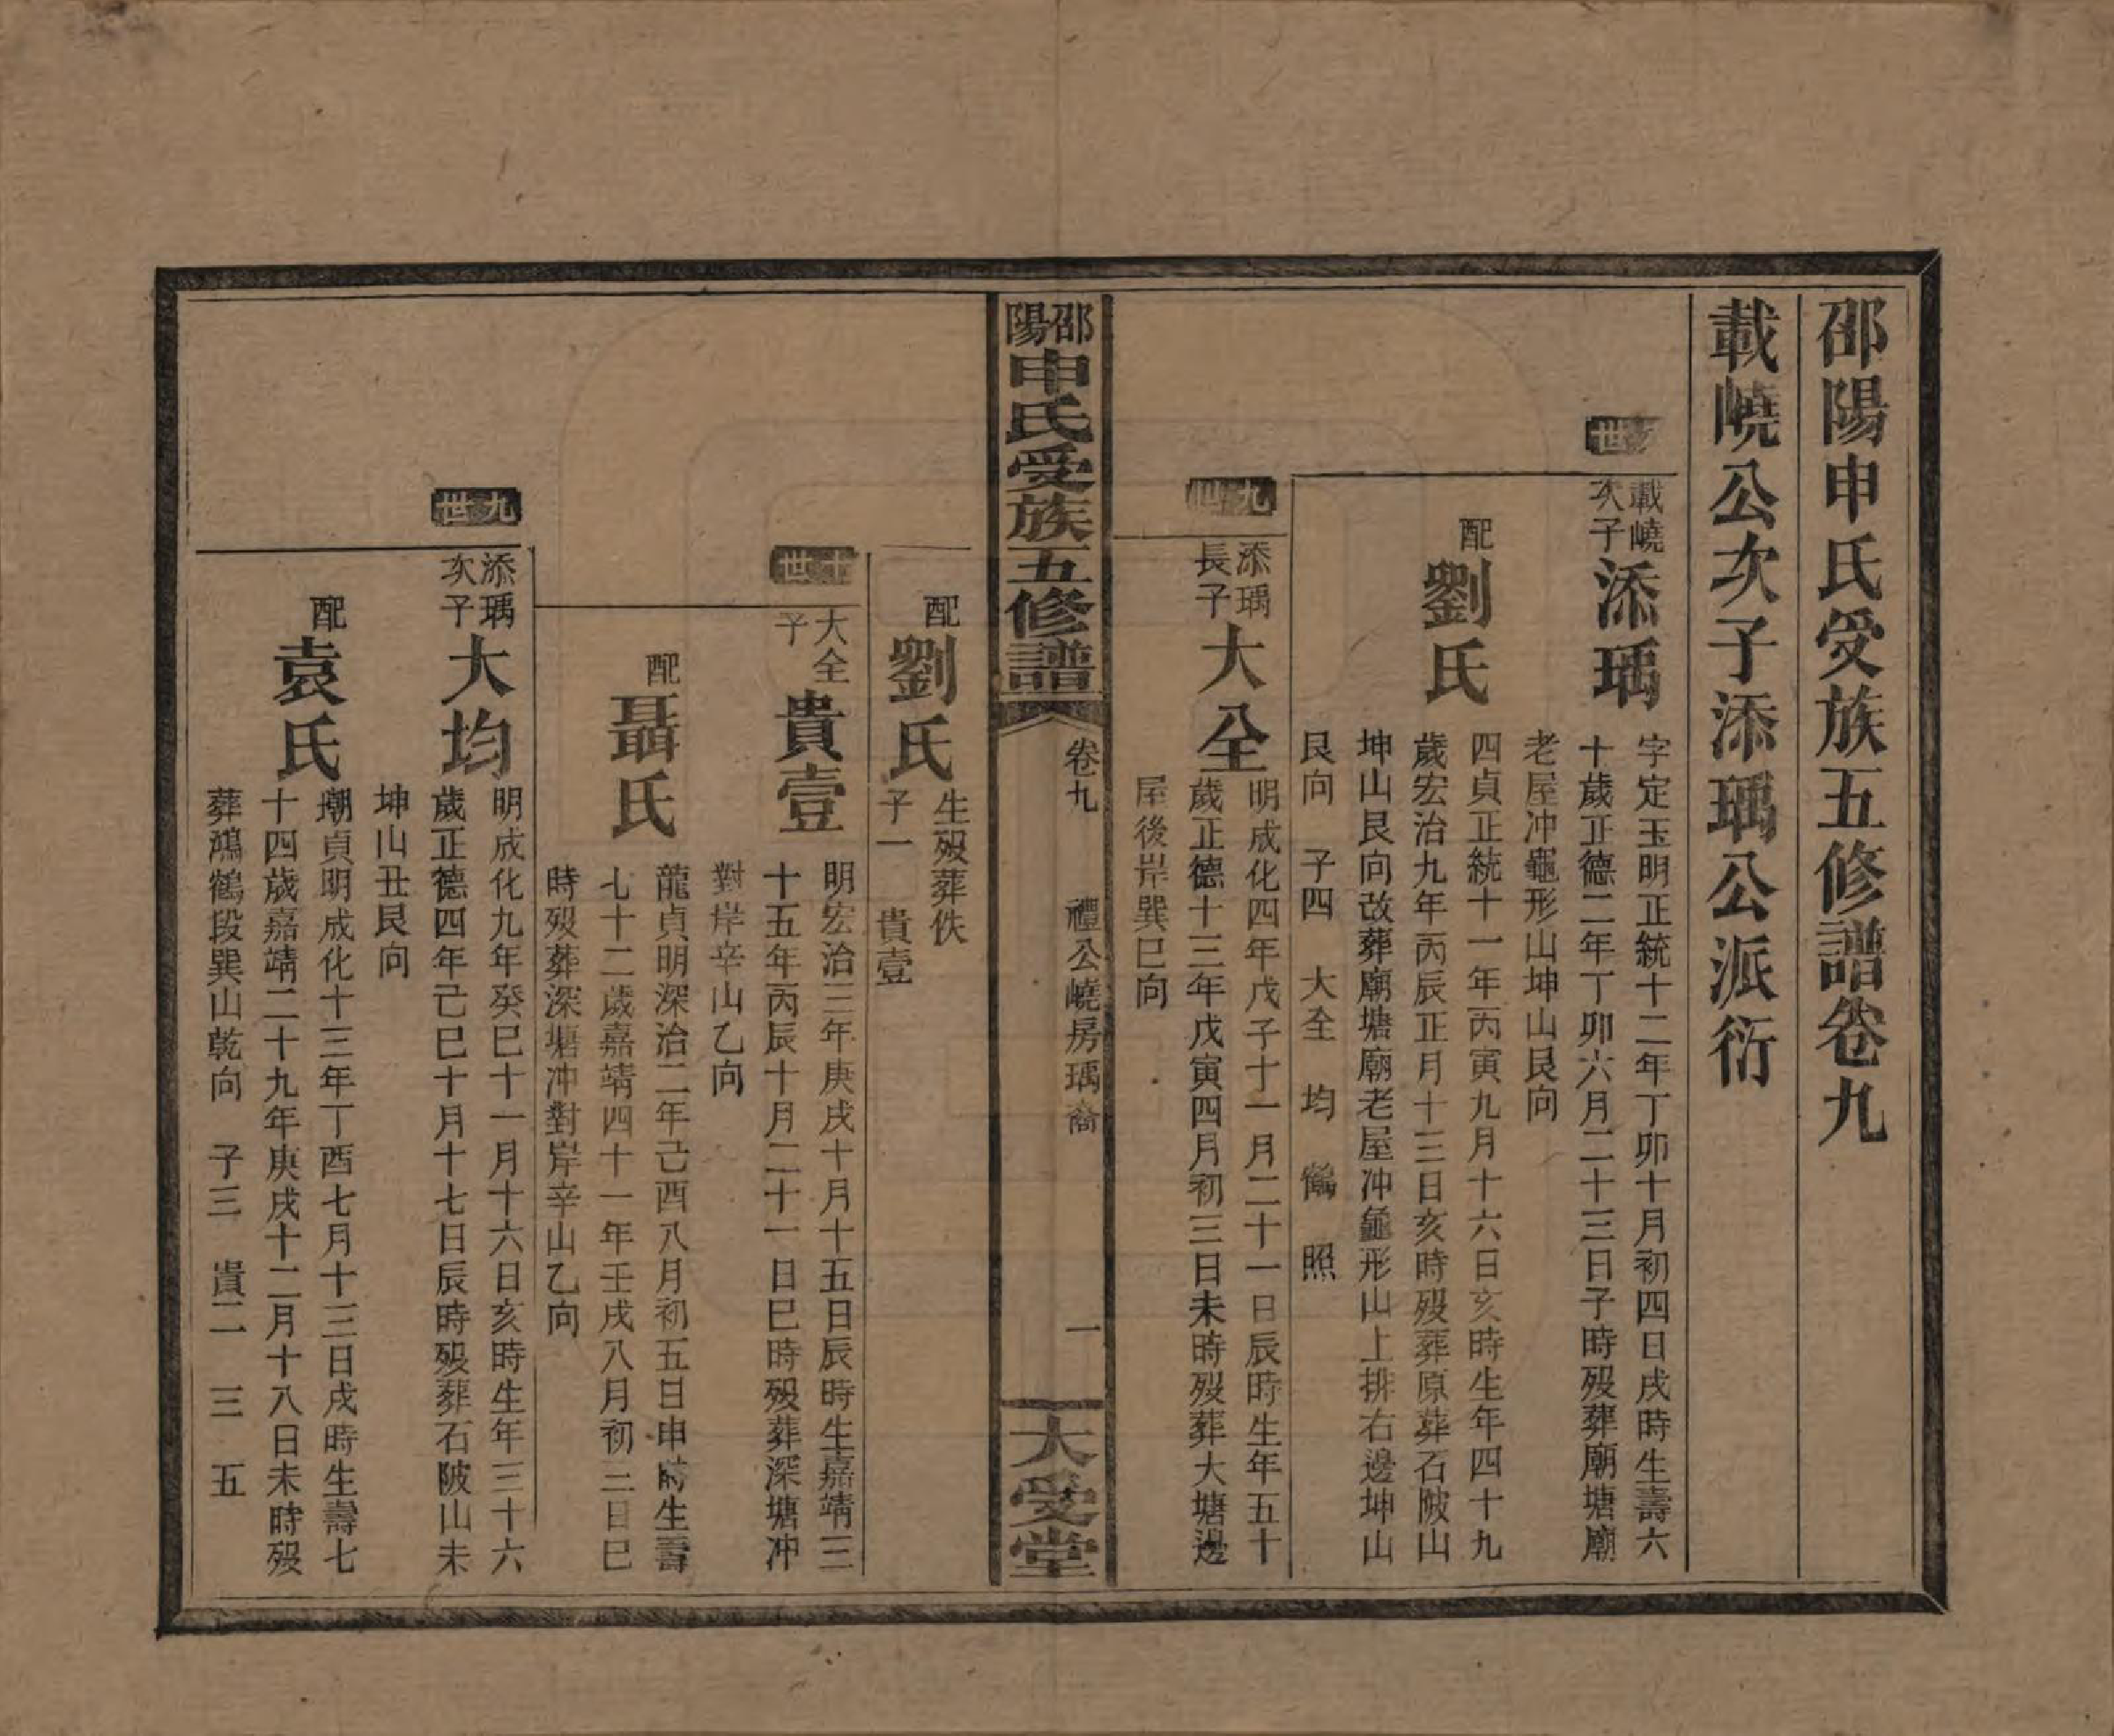 邵陽申氏受族五修譜卷九
載嶢公次子添瑀公派衍
八世
載嶢
次子
添瑀
字定玉明正統十二年丁卯十月初四日戌時生壽六
十歲正德二年丁卯六月二十三日子時歿葬廟塘廟
老屋冲龜形山坤山艮向
配
劉氏
四貞正統十一年丙寅九月十六日亥時生年四十九
歲宏治九年丙辰正月十三日亥時歿葬原葬石陂山
坤山艮向改葬廟塘廟老屋冲龜形山上排右邊坤山
艮向 子四 大全 均 鶴 照
九世
添瑀
長子
大全
明成化四年戊子十一月二十一日辰時生年五十
歲正德十三年戊寅四月初三日未時歿葬大塘邊
屋後岸巽巳向
邵陽申氏受族五修譜
卷九 禮公嶢房瑀裔 一
大受堂
配
劉氏
生歿葬佚
子一 貴壹
十世
大全
子
貴壹
明宏治三年庚戌十月十五日辰時生嘉靖三
十五年丙辰十月二十一日巳時歿葬深塘冲
對岸辛山乙向
配
聶氏
龍貞明深治二年己酉八月初五日申時生壽
七十二歲嘉靖四十一年壬戌八月初二日巳
時歿葬深塘冲對岸辛山乙向
九世
添瑀
次子
大均
明成化九年癸巳十一月十六日亥時生年三十六
歲正德四年己巳十月十七日辰時歿葬石陂山未
坤山丑艮向
配
袁氏
潮貞明成化十三年丁酉七月十三日戌時生壽七
十四歲嘉靖二十九年庚戌十二月十八日未時歿
葬鴻鶴段巽山乾向 子三 貴二 三 五